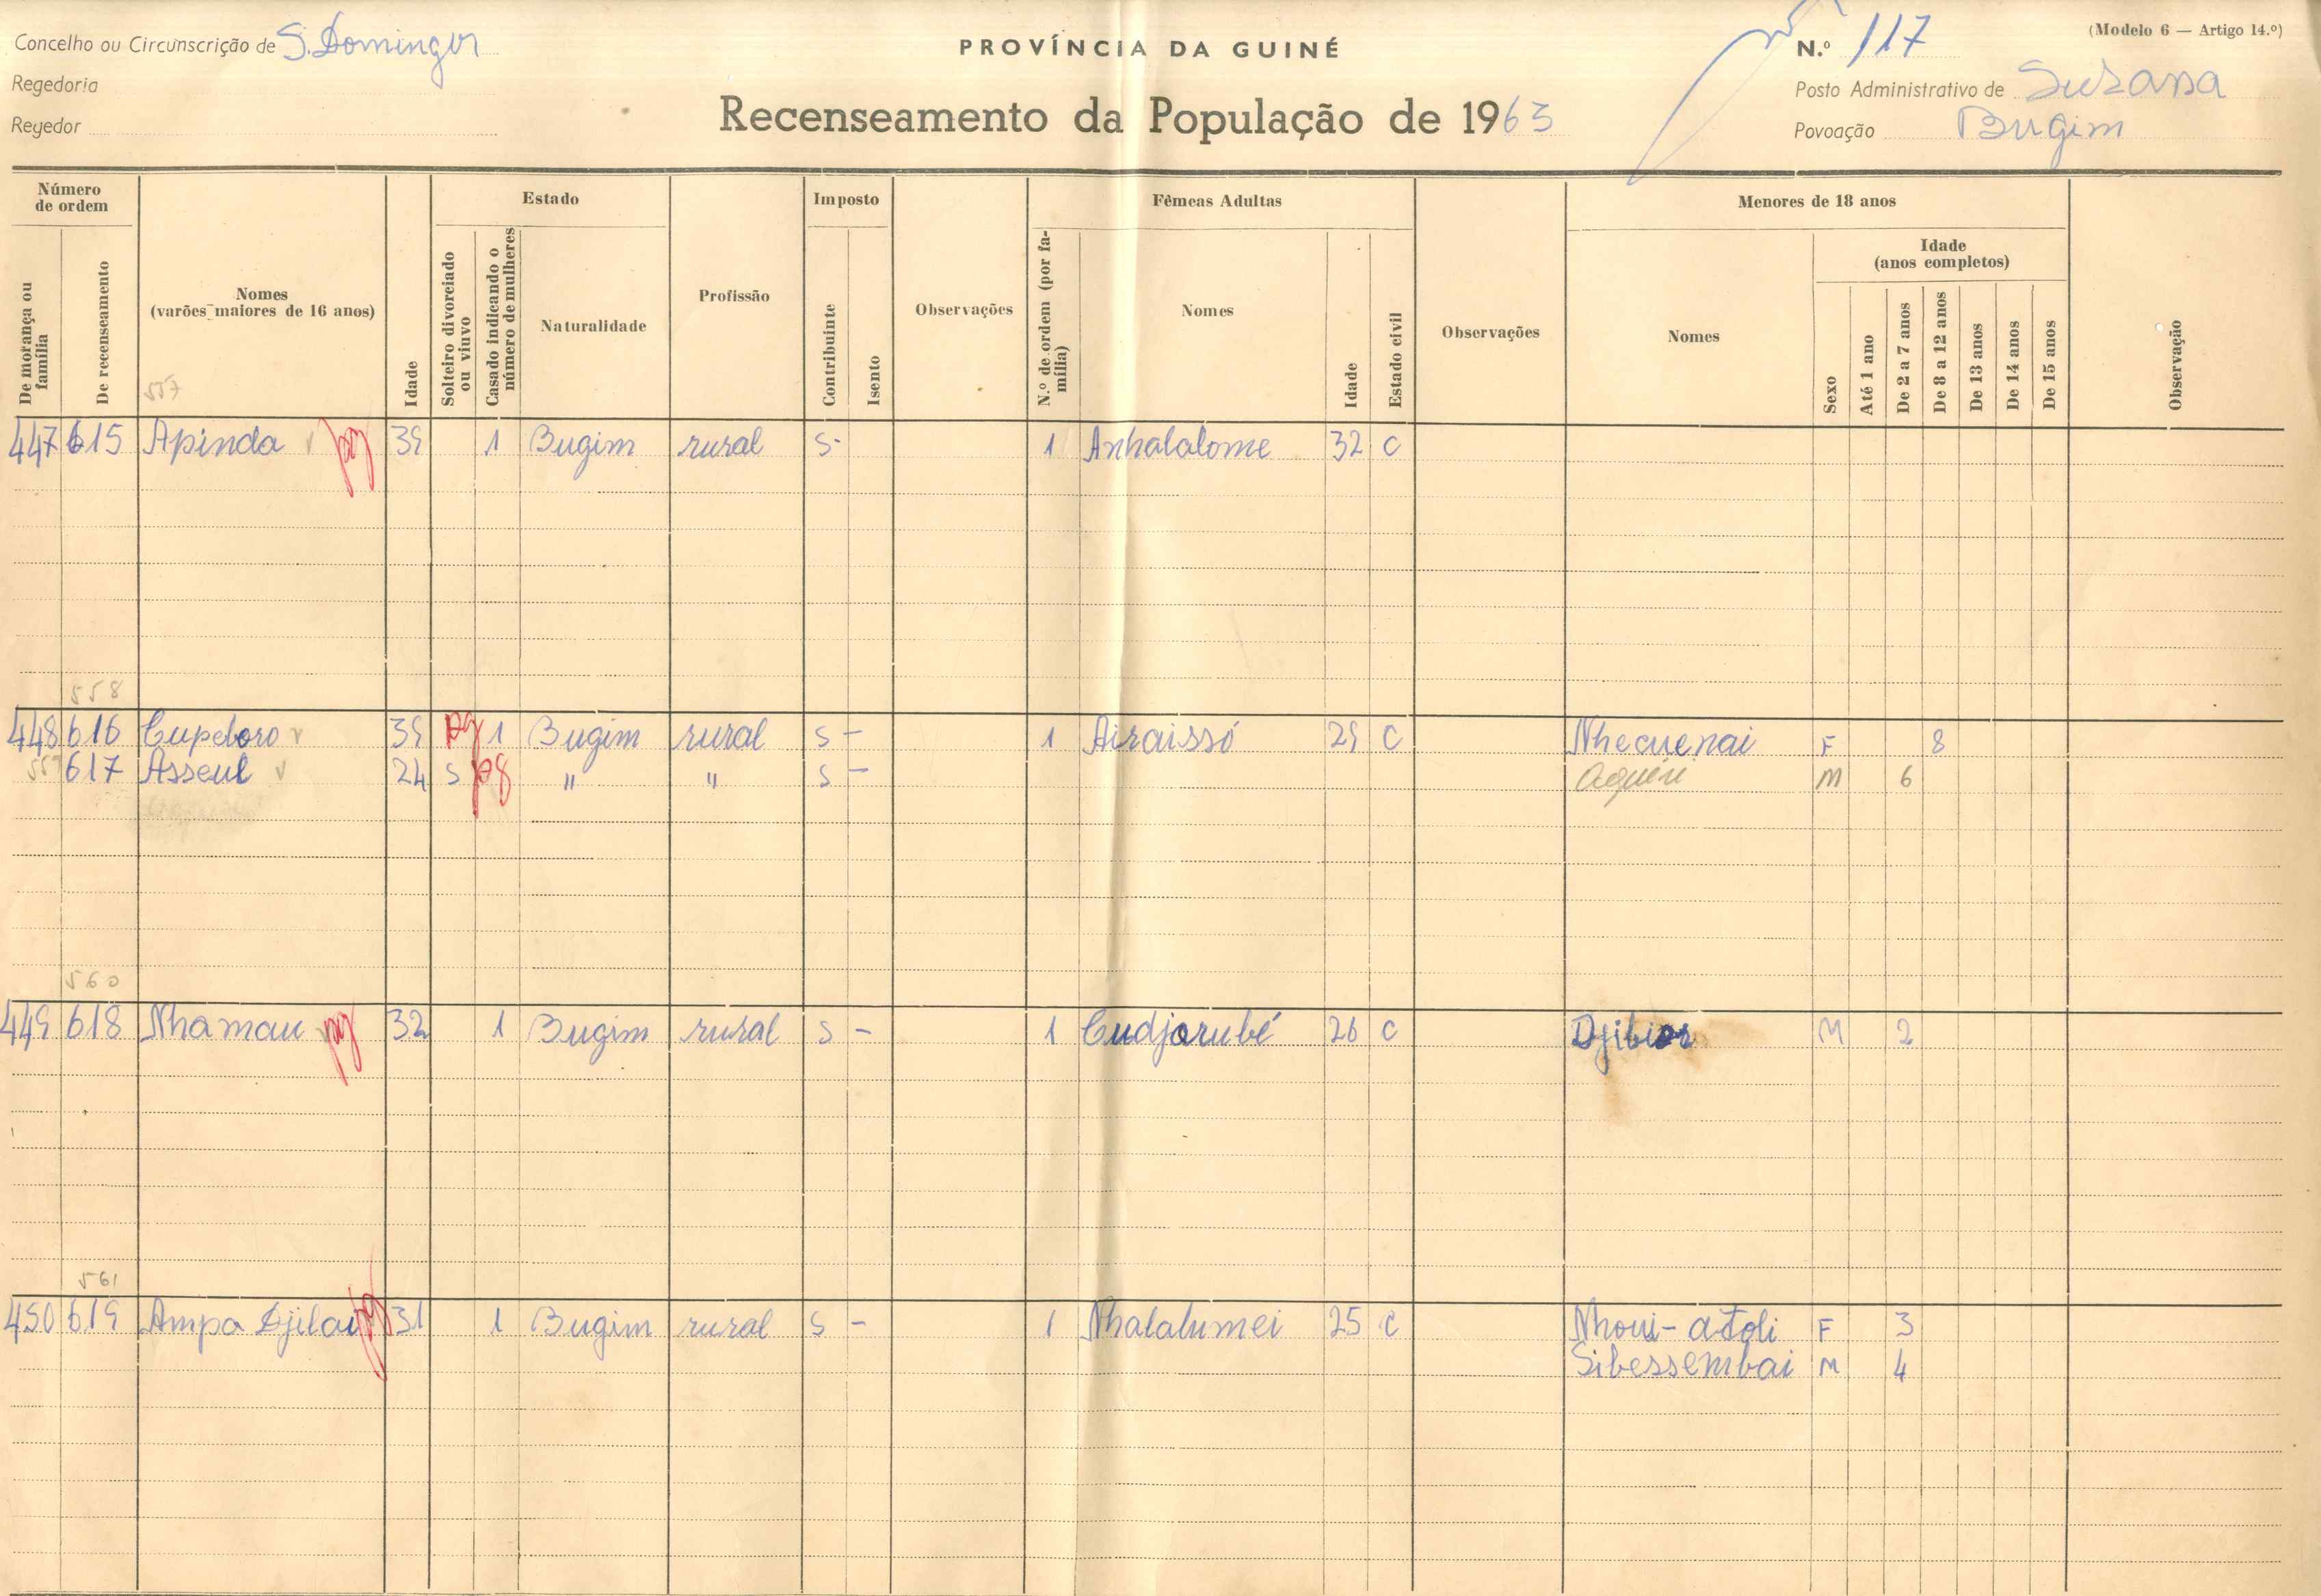 (Modelo 6 — Artigo 14.º)
Concelho ou Circunscrição de S. Domingos
PROVÍNCIA DA GUINÉ
N.º 117
Regedoria
Posto Administrativo de Suzana
Regedor
Recenseamento da População de 1963
Povoação Bugim
Número de ordem
De morança ou família
De recenseamento
Nomes (varões maiores de 16 anos)
Idade
Estado
Solteiro divorciado ou viuvo
Casado indicando o número de mulheres
Naturalidade
Profissão
Imposto
Contribuinte
Isento
Observações
Fêmeas Adultas
N.º de ordem (por família)
Nomes
Idade
Estado civil
Observações
Menores de 18 anos
Nomes
Sexo
Idade (anos completos)
Até 1 ano
De 2 a 7 anos
De 8 a 12 anos
De 13 anos
De 14 anos
De 15 anos
Observação
557
447 615 Apinda v pg 39 1 Bugim rural s- 1 Anhalalome 32 C
558
448 616 Cupeboro v 39 pg 1 Bugim rural s - 1 Airaissó 29 C Nhecuenai F 8
559 617 Asseul v 24 s pg " " s - Aqueri M 6
560
449 618 Nhamau pg 32 1 Bugim rural s - 1 Cudjarubé 26 C Djibior M 2
561
450 619 Ampa Djilai pg 31 1 Bugim rural s - 1 Nhalalumei 25 C Nhoui-atoli F 3
Sibessembai M 4